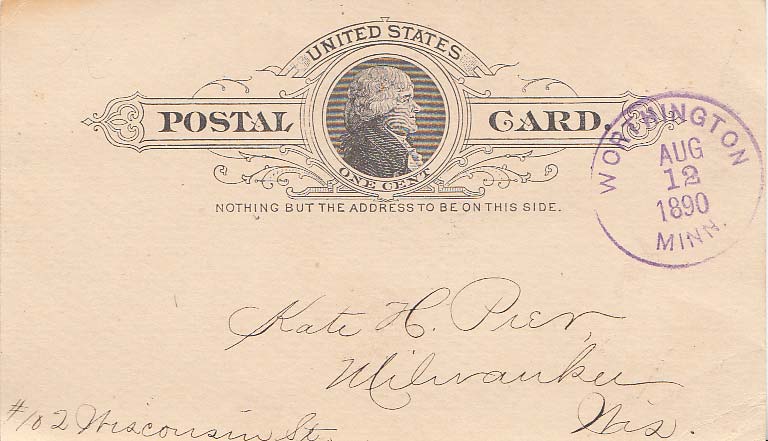 UNITED STATES
POSTAL CARD.
ONE CENT
NOTHING BUT THE ADDRESS TO BE ON THIS SIDE.
WORTHINGTON
AUG
12
1890
MINN.
Kate H. Pier,
Milwaukee
Wis.
#102 Wisconsin St.